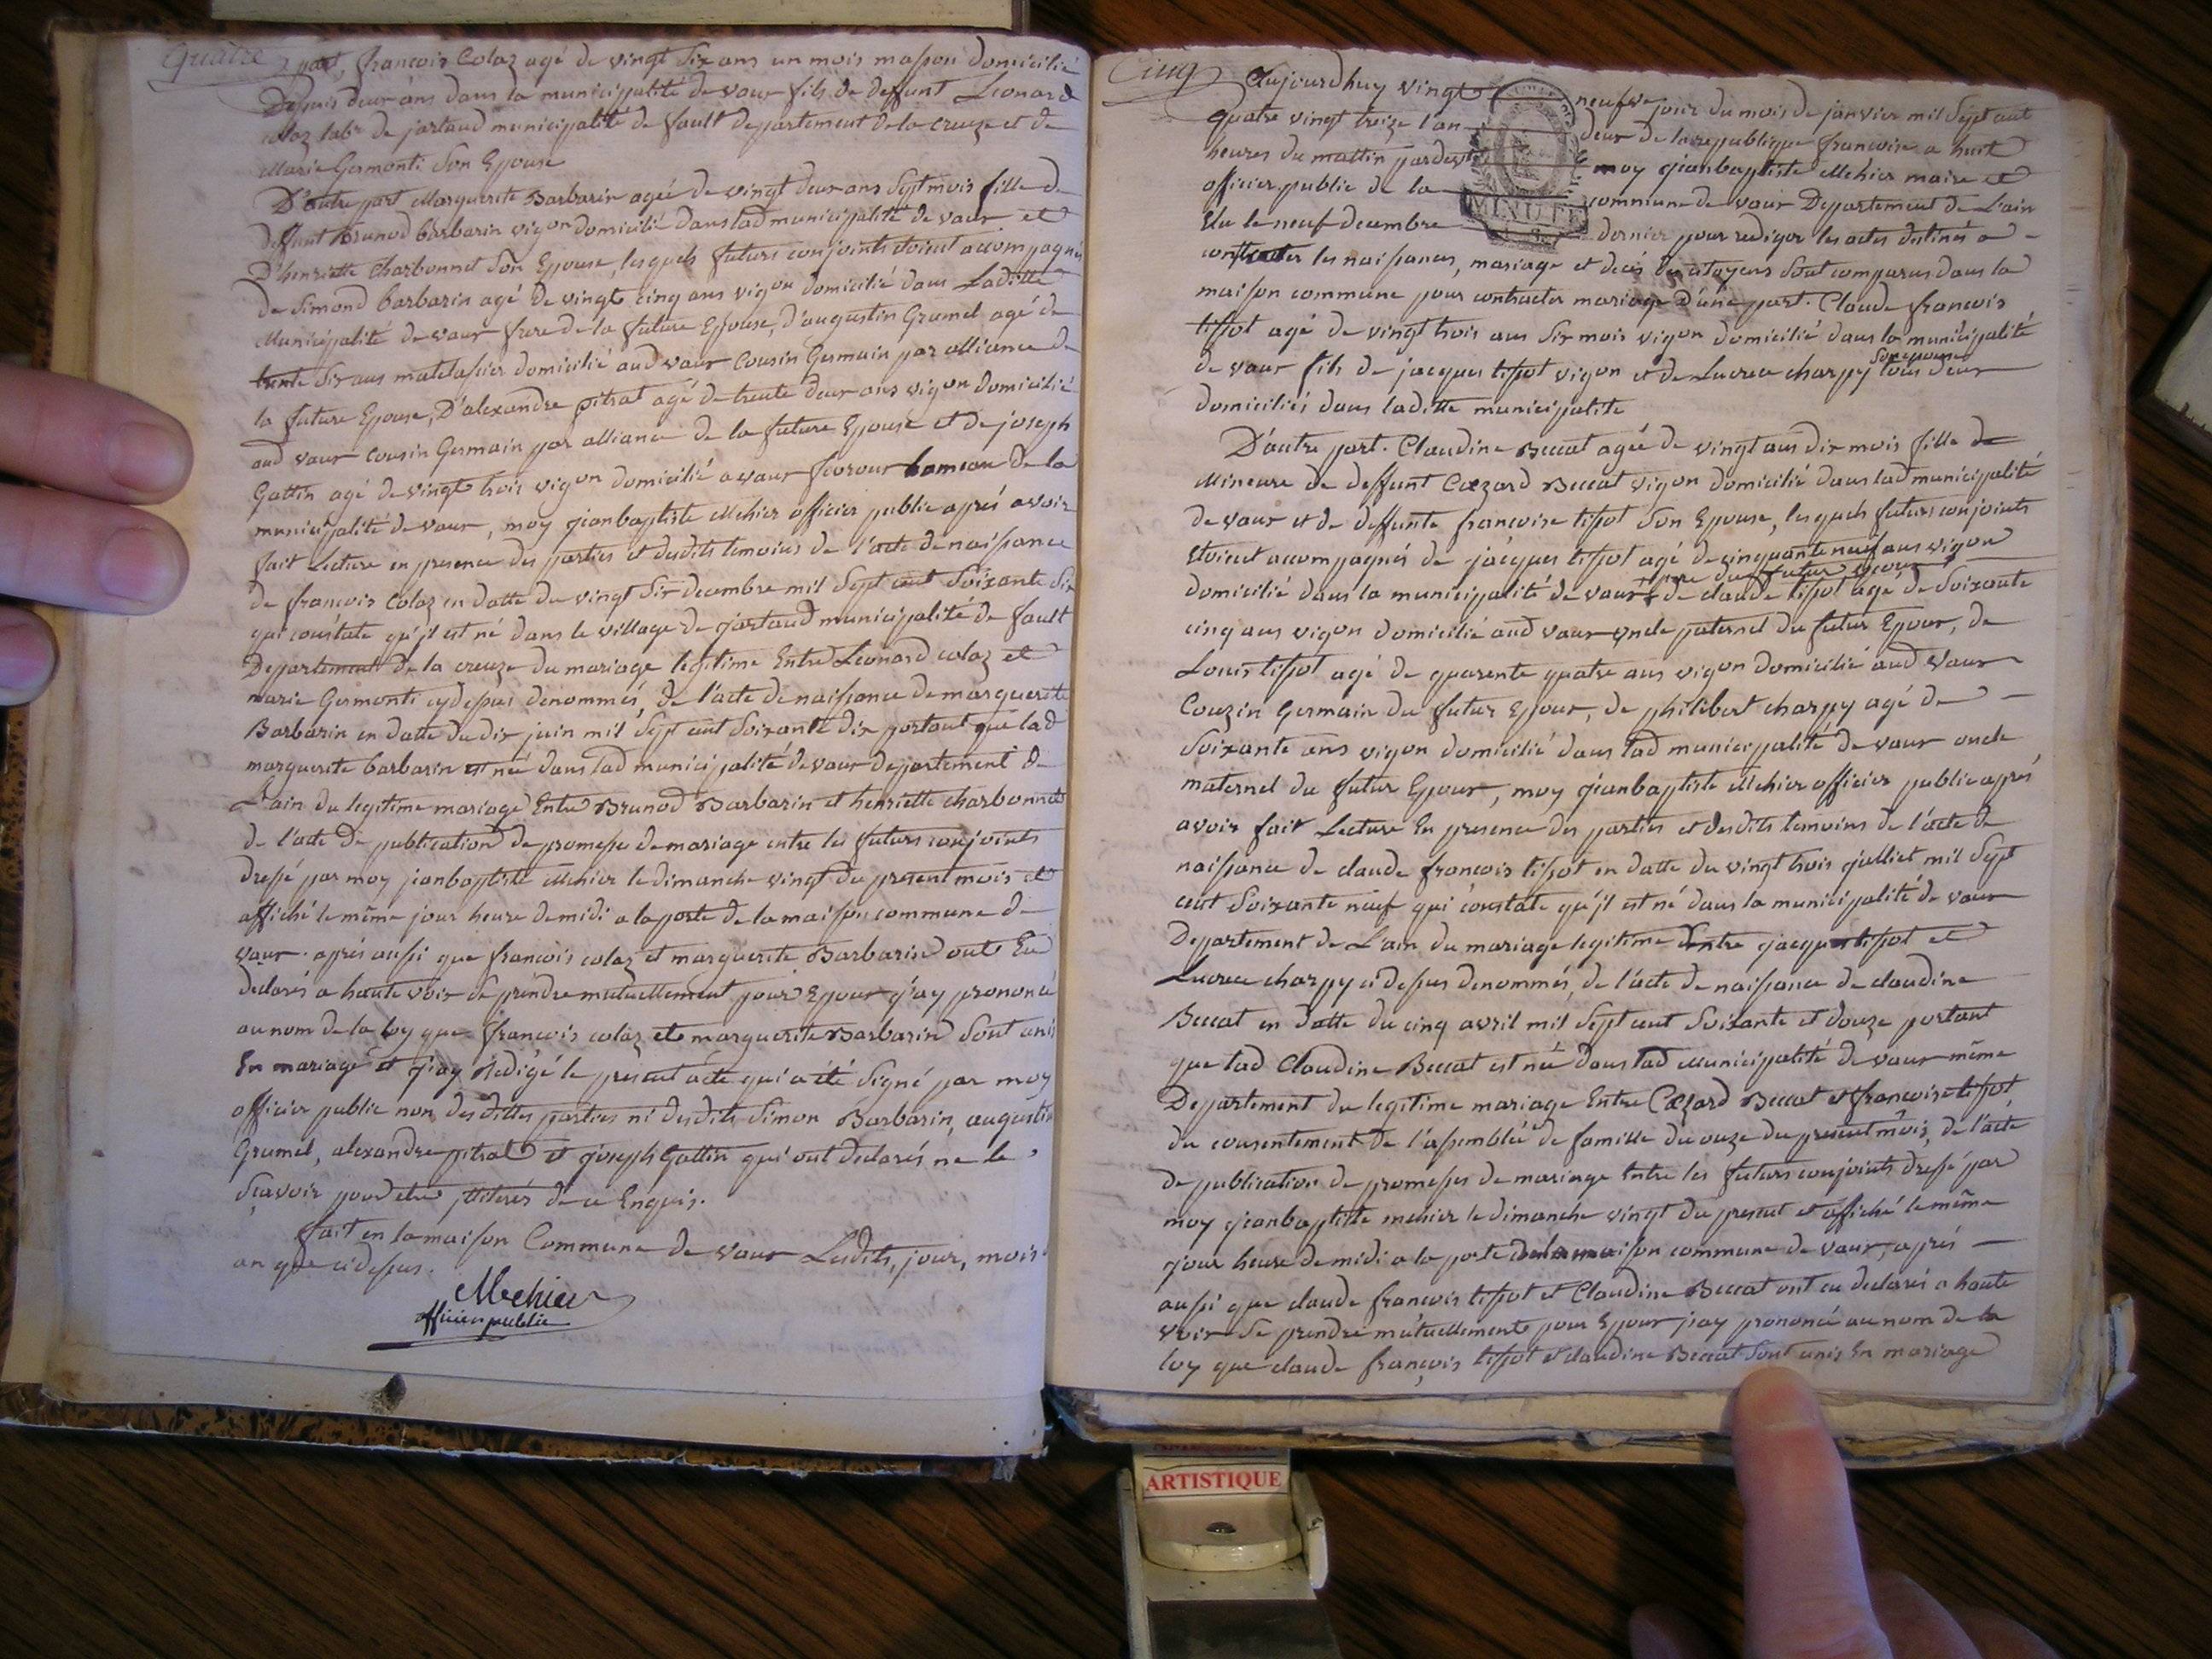 Quatre
part, françois Colaz agé de vingt six ans un mois masson domicilié
Depuis deux ans dans la municipalité de vaux fils de deffunt Leonard
colaz labr de jartaud municipalité de fault departement de la creuze et de
Marie Germonti son Epouse
D'autre part Marguerite Barbarin ageé de vingt deux ans sept mois fille de
deffunt Brunod barbarin vigon domicilié dans lad municipalité de vaux et
D'henriette Charbonnet son Epouse, lesquels futurs conjoints etoient accompagnés
de Simond barbarin agé de vingt cinq ans vigon domicilié dans Laditte
Municipalité de vaux frere de la future Epouse, d'augustin Grumel agé de
trente six ans matelassier domicilié aud vaux Cousin Germain par alliance de
la future Epouse, D'alexandre pitrat agé de trente deux ans vigon domicilié
aud vaux cousin Germain par alliance de la future Epouse et de joseph
Gattin agé de vingt trois vigon domicilié a vaux fevroux hameau de la
municipalité de vaux, moy jeanbaptiste Mehier officier public aprés avoir
fait Lecture en presence des parties et desdits temoins de l'acte de naissance
de françois Colaz en datte du vingt six decembre mil sept cent soixante six
qui constate qu'jl est né dans le village de jartaud municipalité de fault
Departement de la creuze du mariage legitime Entre Leonard colaz et
marie Germonti cydessus denommés, de l'acte de naissance de marguerite
Barbarin en datte du dix juin mil sept cent soixante dix portant que lad
marguerite barbarin est neé dans lad municipalité de vaux departement de
L'ain du legitime mariage Entre Brunod Barbarin et henriette charbonnet
de l'acte de publication de promesse de mariage entre les futurs conjoints
dressé par moy jeanbaptiste Mehier le dimanche vingt du present mois et
affiché le même jour heure de midi a la porte de la maison commune de
vaux. aprés aussi que francois colaz et marguerite Barbarin ont Eu
declarés a haute voix se prendre mutuellement pour Epoux j'ay prononcé
au nom de la loy que francois colaz et marguerite Barbarin sont unis
En mariage et j'ay rédigé le present acte qui a été signé par moy
officier public non desdittes parties ni desdits Simon Barbarin, augustin
Grumel, alexandre pitrat et joseph Gattin qui ont declarés ne le
sçavoir pour de ce Enquis.
fait en la maison Commune de vaux Lesdits, jour, mois
an que cidessus.
Mehier
officier public
Cinq
Aujourdhuy vingt neufve jour du mois de janvier mil sept cent
quatre vingt treize l'an deux de la republique francoise a huit
heures du mattin pardevant moy jeanbaptiste Mehier maire et
officier public de la commune de vaux Departement de L'ain
Elu le neuf decembre dernier pour rediger les actes destinés a
MINUTE
constater les naissances, mariage et decés des citoyens sont comparus dans la
maison commune pour contracter mariage D'une part. Claude francois
tissot agé de vingt trois ans six mois vigon domicilié dans la municipalité
de vaux fils de jacques tissot vigon et de Lucrece charpy son epouse tous deux
domiciliés dans laditte municipalité
D'autre part. Claudine Beccat ageé de vingt ans dix mois fille de
Mineure de deffunt Cæzard Beccat vigon domicilié dans lad municipalité
de vaux et de deffunte francoise tissot son Epouse, lesquels futurs conjoints
Etoient accompagnés de jacques tissot agé de cinquante neuf ans vigon
domicilié dans la municipalité de vaux pere du futur epoux de claude tissot agé de soixante
cinq ans vigon domicilié aud vaux oncle paternel du futur Epoux, de
Louis tissot agé de quarente quatre ans vigon domicilié aud vaux
Couzin Germain du futur Epoux, de philibert charpy agé de
soixante ans vigon domicilié dans lad municipalité de vaux oncle
maternel du futur Epoux, moy jeanbaptiste Mehier officier public aprés
avoir fait Lecture En presence des parties et desdits temoins de l'acte de
naissance de claude francois tissot en datte du vingt trois juilliet mil sept
cent soixante neuf qui constate qu'jl est né dans la municipalité de vaux
Departement de L'ain du mariage legitime Entre jacques tissot et
Lucrece charpy cidessus denommés, de l'acte de naissance de claudine
Beccat en datte du cinq avril mil sept cent soixante et douze portant
que lad Claudine Beccat est neé dans lad Municipalité de vaux même
Departement du legitime mariage Entre Cæzard Beccat et francoise tissot,
du consentement de l'assembleé de famille du onze du present mois, de l'acte
de publication de promesses de mariage Entre les futurs conjoints dressé par
moy jeanbaptiste mehier le dimanche vingt du present et affiché le même
jour heure de midi a la porte de la maison commune de vaux, aprés
aussi que claude francois tissot et Claudine Beccat ont eu declarés a haute
voix se prendre mutuellement pour Epoux j'ay prononcé au nom de la
loy que claude françois tissot et claudine Beccat sont unis En mariage
ARTISTIQUE